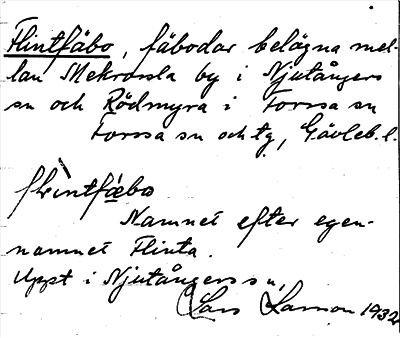 Flintfäbo, fäbodar belägna mel-
lan Mekrorsla by i Njutångers
sn och Rödmyra i Forssa sn
Forssa sn och tg, Gävleb. l.
flìntfǽbo
Namnet efter egen-
namnet Flinta.
Uppt i Njutångers sn,
Lars Larsson 1932